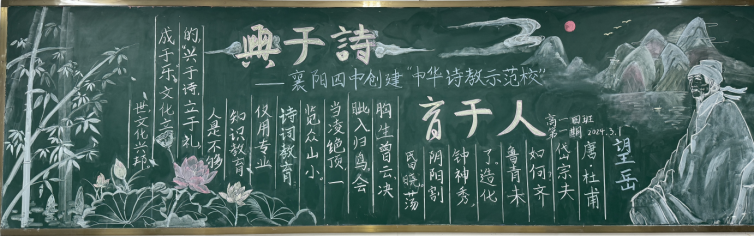 興于詩
——襄阳四中创建"中华诗教示范校"
育于人
高一四班
第一期 2024.3.1
望岳
唐 杜甫
岱宗夫
如何齐
鲁青未
了。造化
钟神秀,
阴阳割
昏晓荡
胸生曾云决
眦入归鸟,会
当凌绝顶,一
览众山小。
诗词教育
仅用专业
知识教育
人是不够
的,"兴于诗,立于礼,
成于乐",文化
世文化兴邦.